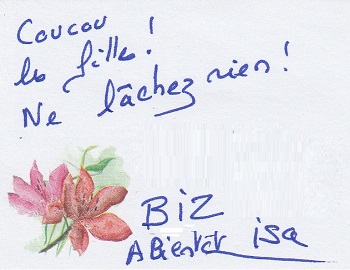 Coucou
les filles!
Ne lâchez rien!
Biz
A Bientôt isa